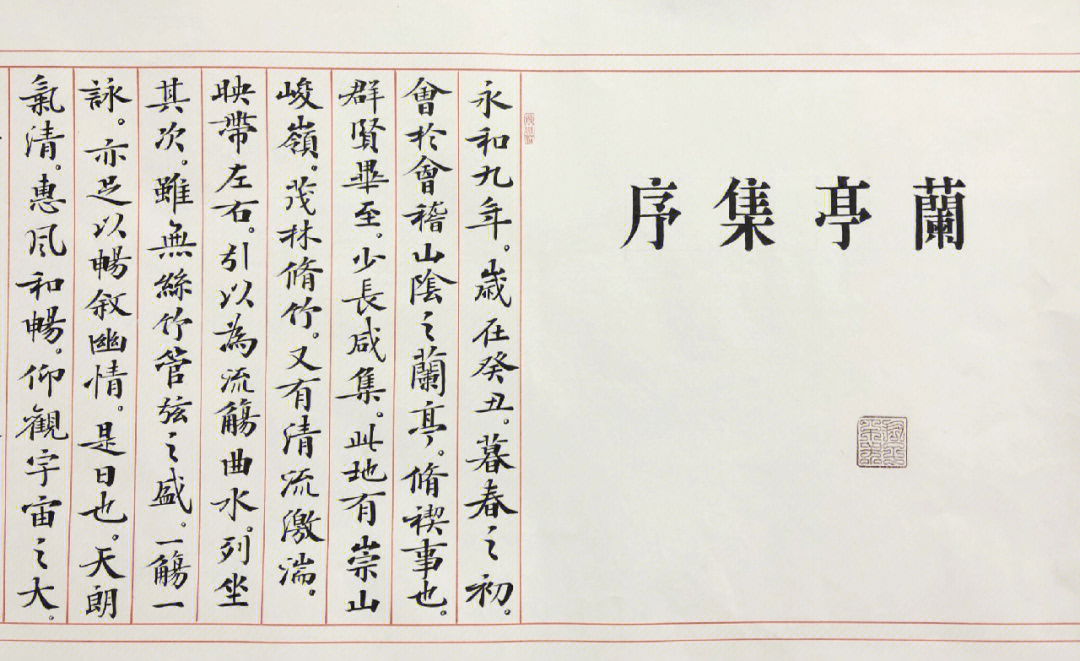 蘭亭集序
永和九年。歲在癸丑。暮春之初。
會於會稽山陰之蘭亭。脩禊事也。
群賢畢至。少長咸集。此地有崇山
峻嶺。茂林脩竹。又有清流激湍。
映帶左右。引以為流觴曲水。列坐
其次。雖無絲竹管弦之盛。一觴一
詠。亦足以暢敘幽情。是日也。天朗
氣清。惠風和暢。仰觀宇宙之大。